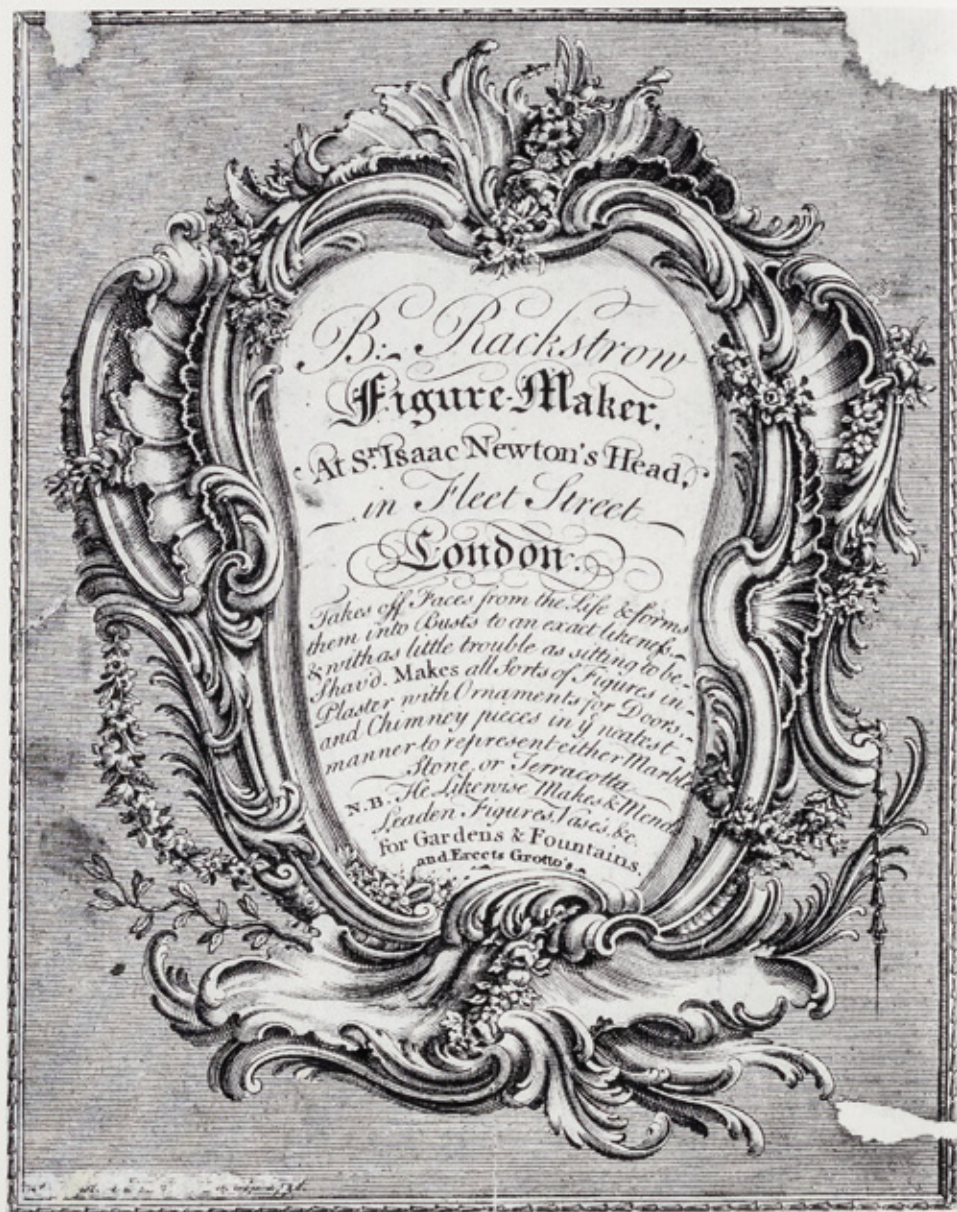 B: Rackstrow
Figure-Maker.
At Sr. Isaac Newton's Head,
in Fleet Street
London.
Takes off Faces from the Life & forms
them into Busts to an exact likeness
& with as little trouble as sitting to be
Shav'd. Makes all Sorts of Figures in
Plaster with Ornaments for Doors,
and Chimney pieces in ye neatest
manner to represent either Marble
Stone, or Terracotta.
N.B. He Likewise Makes & Mends
Leaden Figures, Vases, &c.
for Gardens & Fountains,
and Erects Grotto's